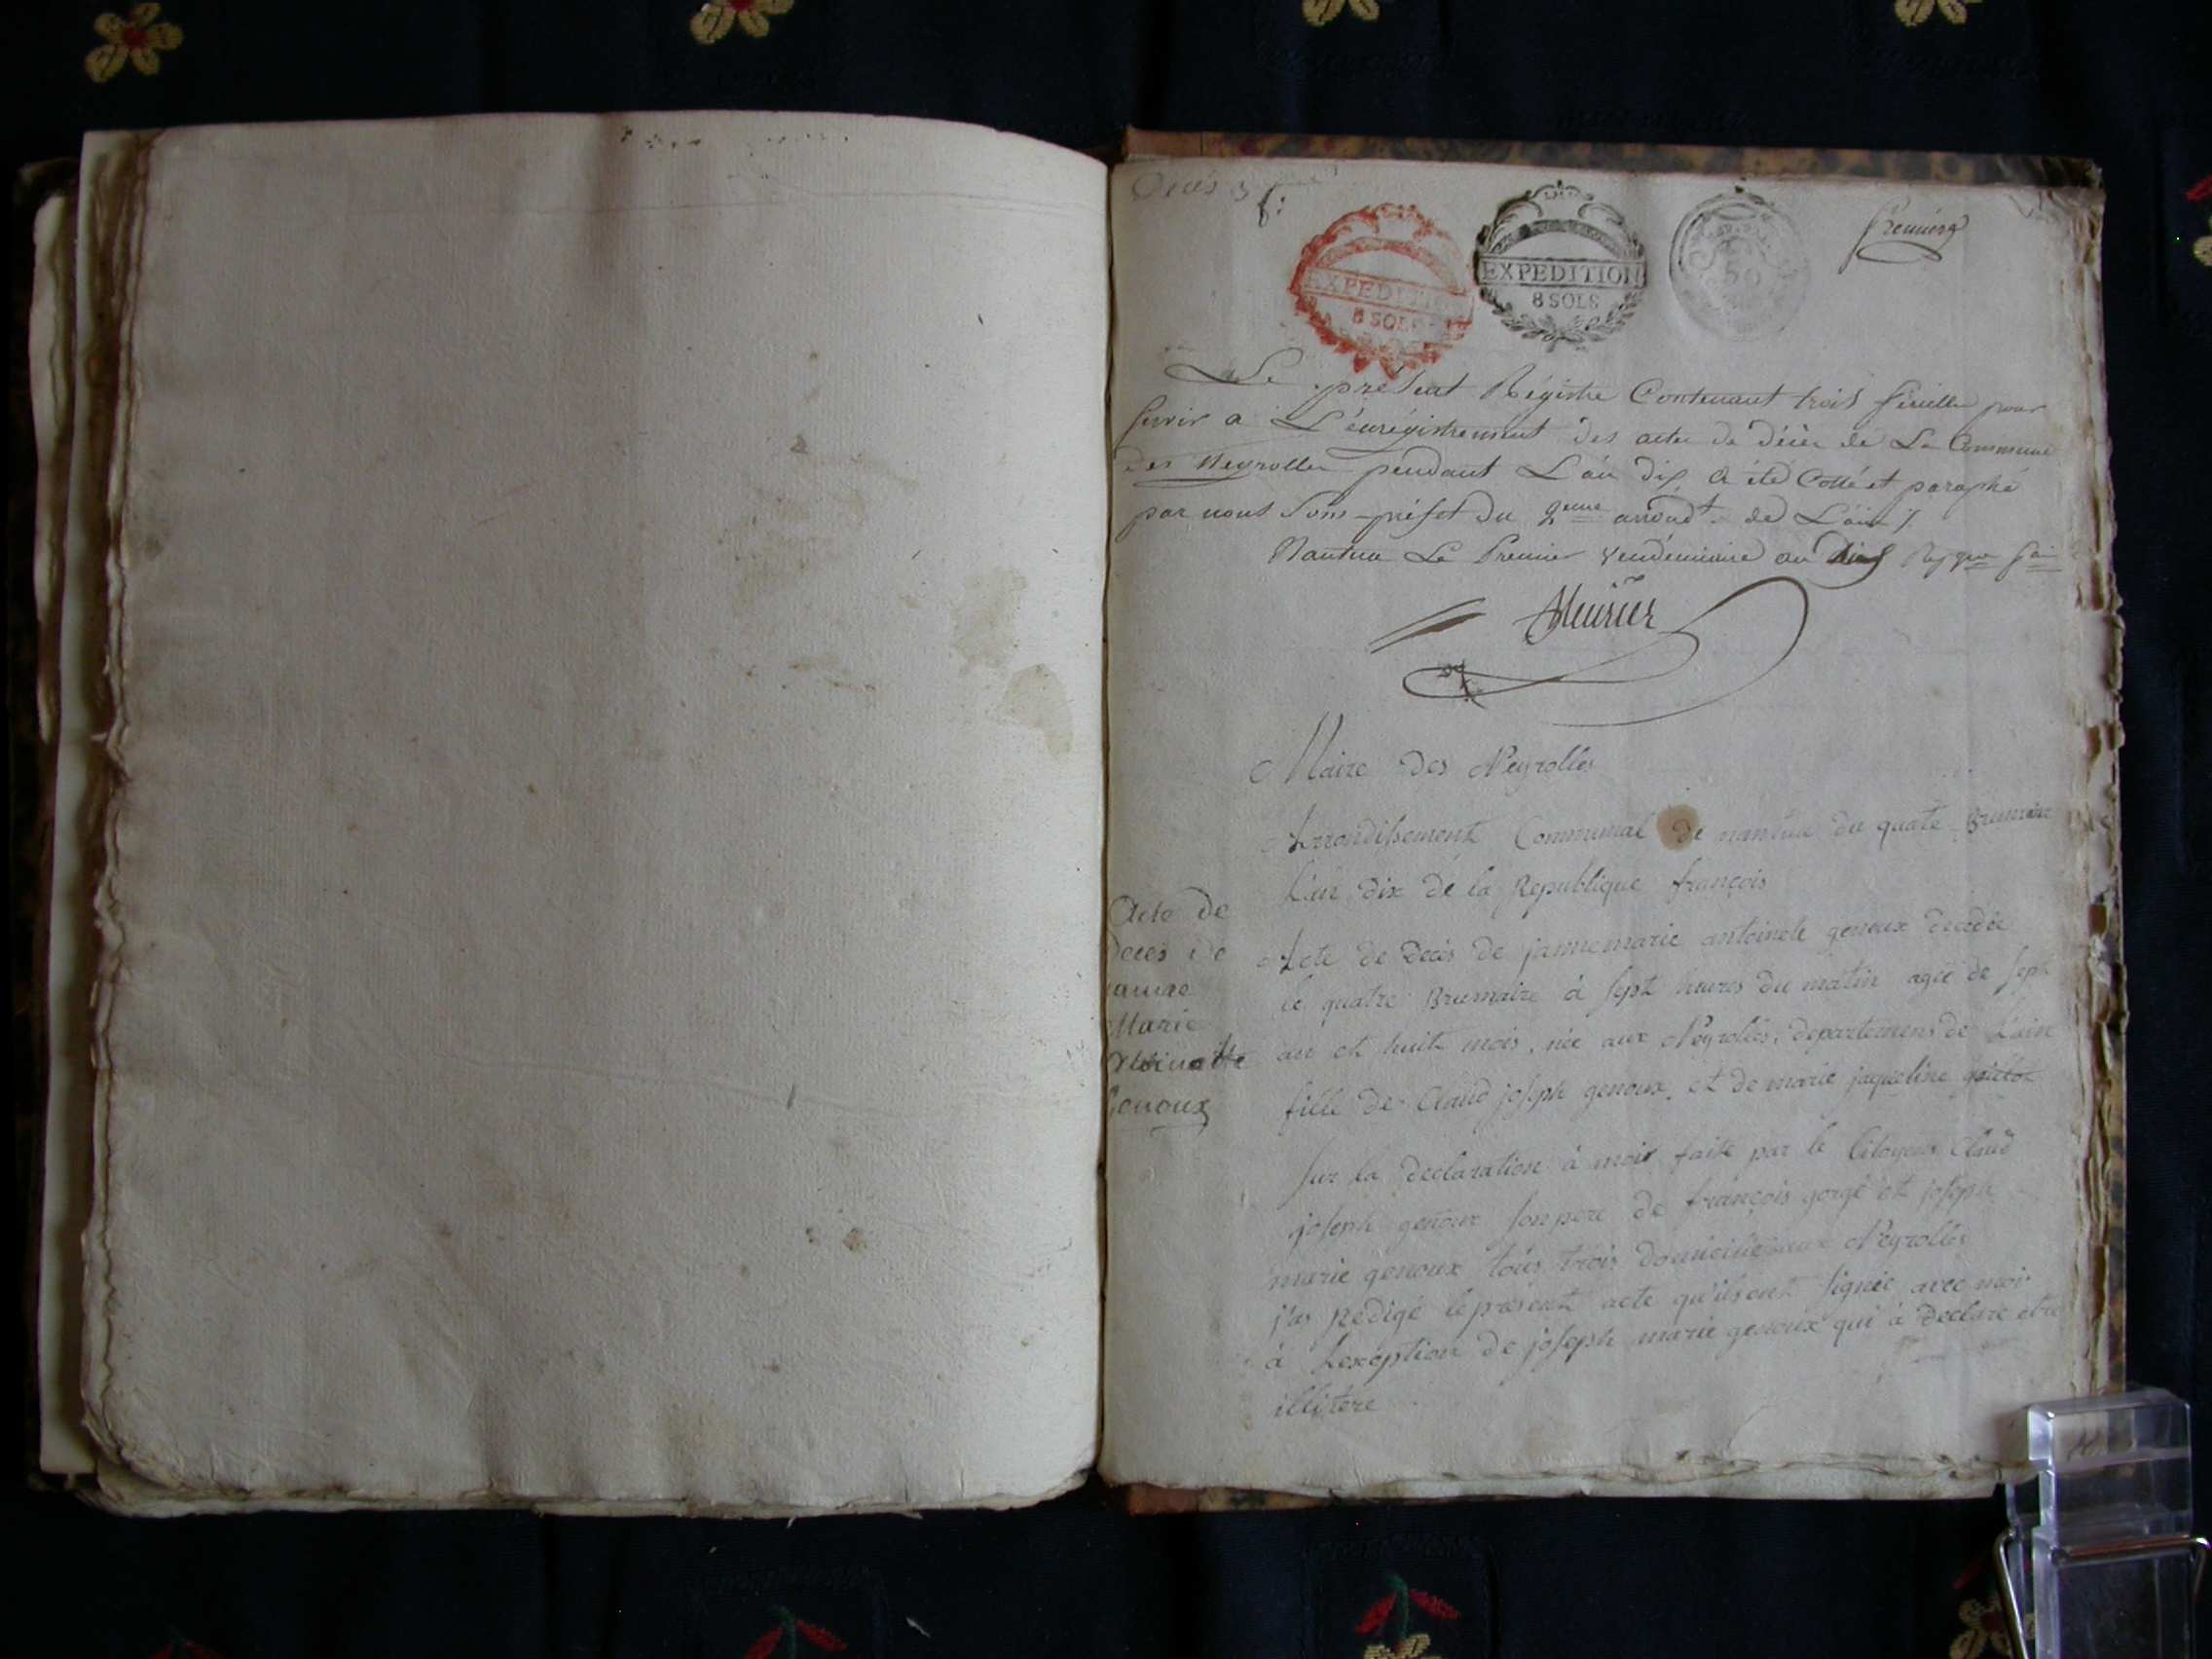 Décès 3 f:
EXPEDITION
8 SOLS
EXPEDITION
8 SOLS
50
Premier
Le présent Régistre Contenant trois feuilles pour
servir a L'énrégistrement des actes de décès de La Commune
des Neyrolles pendant L'an dix a été Cotté et paraphé
par nous Sous-préfet du 2eme arrondt. de L'ain
Nantua Le Premier vendémiaire an Dix
Meurier
Maire des Neyrolles
Arrondissement Communal de nantua du quate Brumaire
L'an dix de la Republique françois
Acte de
Decès de
janne
Marie
Antoinette
Genoux
Acte de Decès de jannemarie antoinete genoux decedée
le quatre Brumaire à sept heures du matin agée de sept
an et huit mois, née aux Neyrolles, departemens de L'ain
fille de Claud joseph genoux, et de marie jaqueline
sur la declaration à moir faite par le Citoyens Claud
joseph genoux son pere de françois gorge et joseph
marie genoux tous trois domicilié aux Neyrolles
j'as redigé le présent acte qu'ils ont signée avec moi
à l'exéption de joseph marie genoux qui à declaré etre
illitére